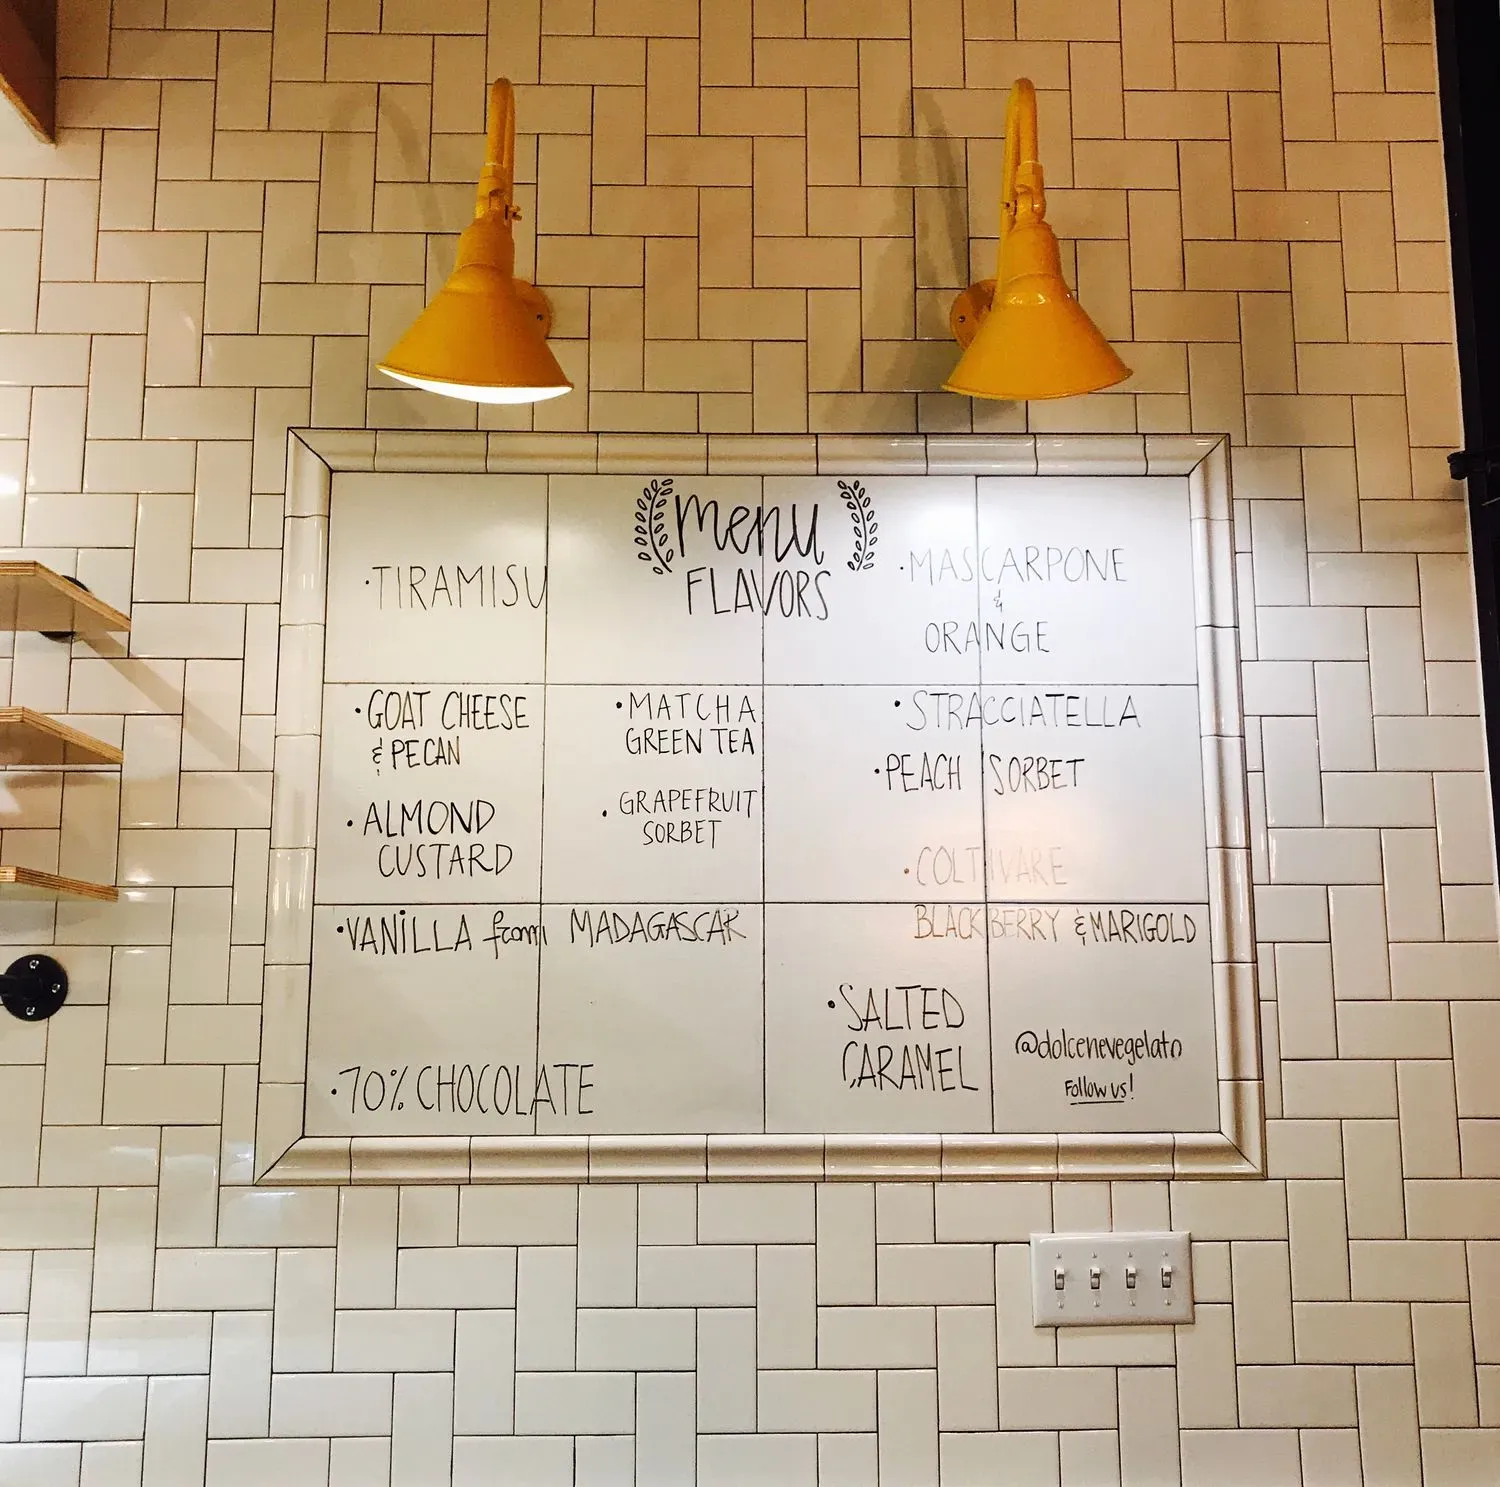 menu
FLAVORS
· TIRAMISU
· GOAT CHEESE
& PECAN
· ALMOND
CUSTARD
· VANILLA from MADAGASCAR
· 70% CHOCOLATE
· MATCHA
GREEN TEA
· GRAPEFRUIT
SORBET
· MASCARPONE
&
ORANGE
· STRACCIATELLA
· PEACH SORBET
· COLTIVARE
BLACKBERRY & MARIGOLD
· SALTED
CARAMEL
@dolcenevegelato
Follow us!